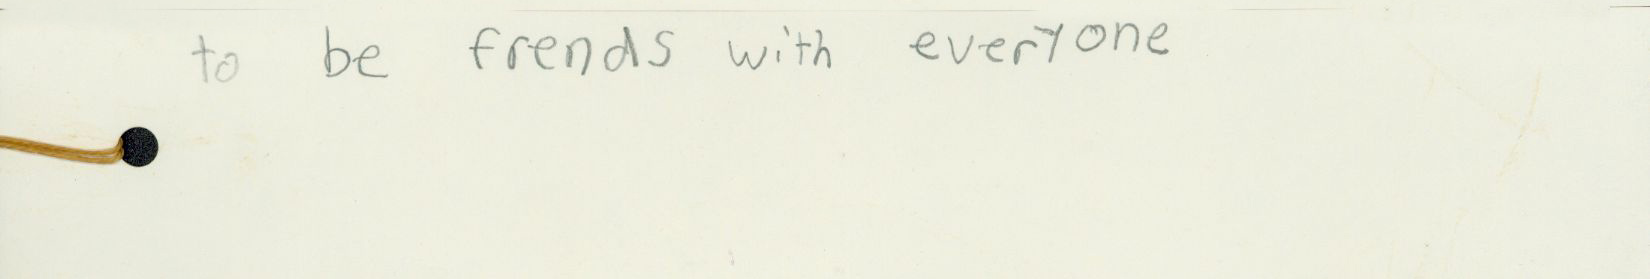 to be frends with everyone